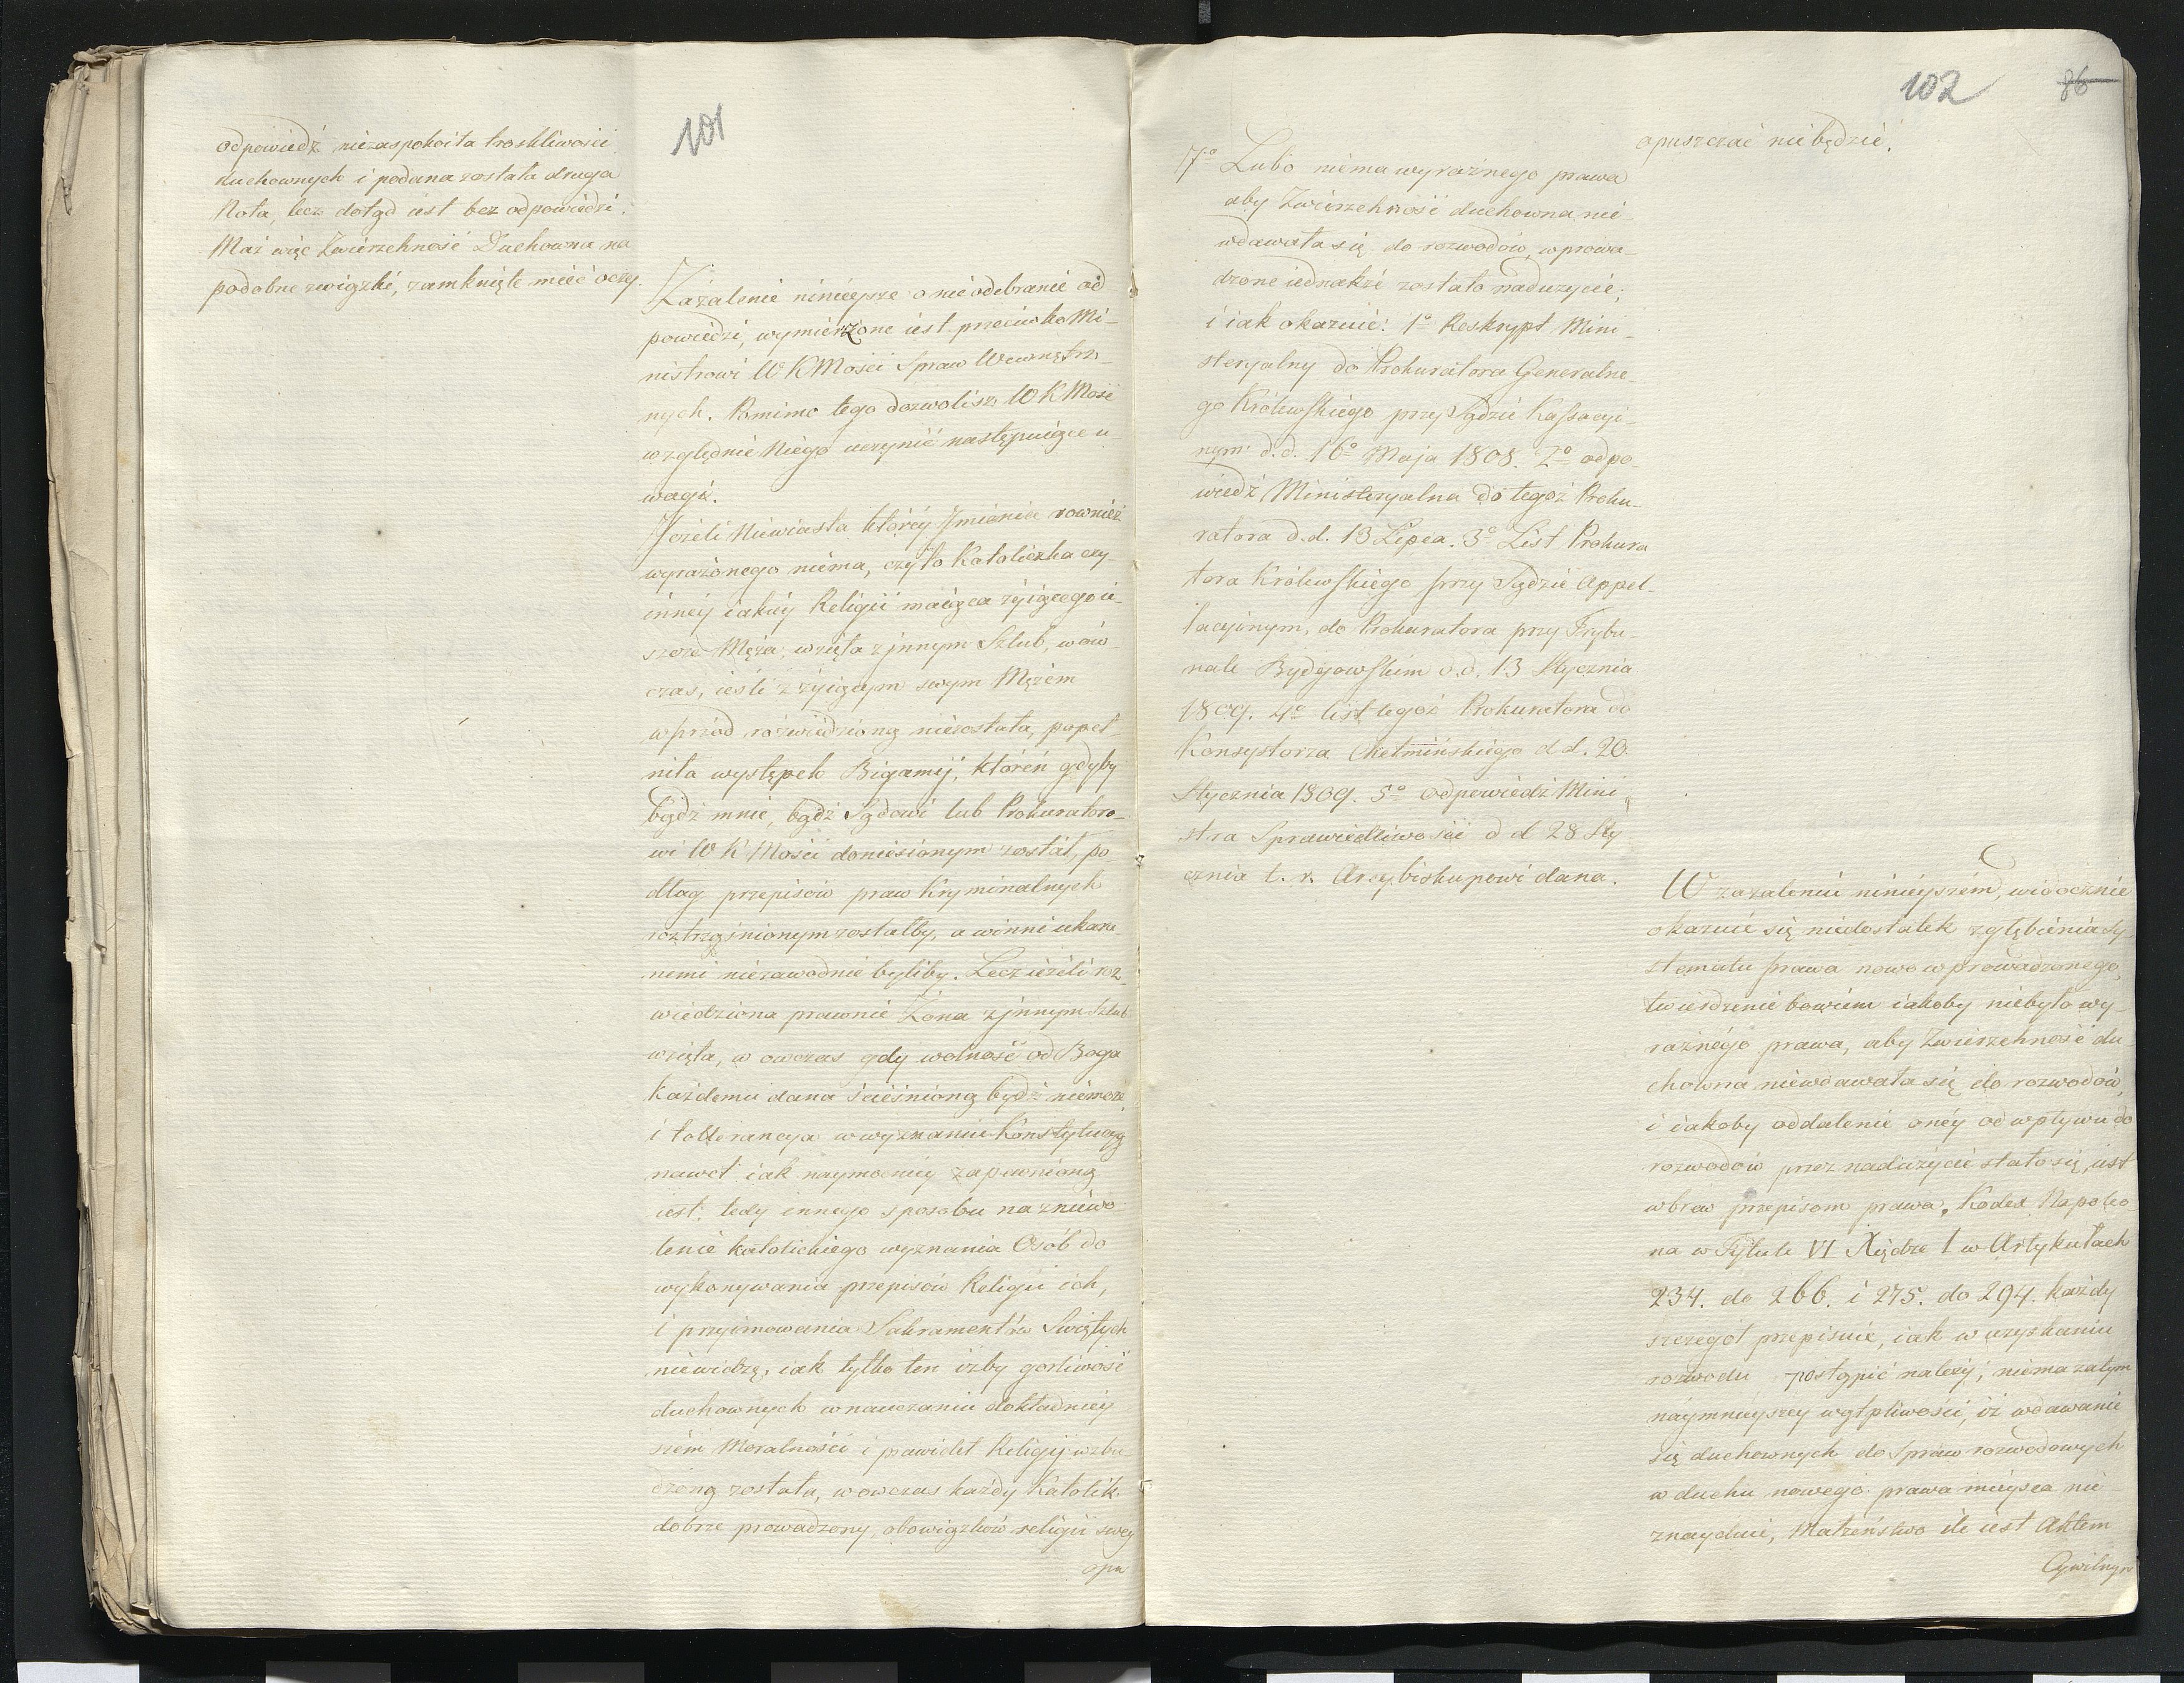 101
odpowiedź niezaspokoiła troskliwości
duchownych i podana została druga
Nota, lecz dotąd iest bez odpowiedzi.
Maż więc Zwierzchność Duchowna na
podobne związki, zamknięte mieć oczy.
Zażalenie ninieysze o nieodebranie od
powiedzi, wymierzone iest przeciwko Mi-
nistrowi W K Mości Spraw Wewnętrz-
nych. Pomimo tego dozwolisz W K Mość
względnie Niego uczynić następuiące u
wagi.
Jeżeli Niewiasta którey Jmienia rownież
wyrażonego niema, czyto Katoliczka czy-
inney iakiey Religii maiąca żyiącego ie-
szcze Męża, wzięła z jnnym Szlub, wów
czas, ieśli z żyiącym swym Mężem
wprzód rozwiedzioną niezostała, popeł-
niła występek Bigamij, któren gdyby
bądź mnie, bądź Sądowi lub Prokuratoro-
wi W K Mości doniesionym został, po
dług przepisów praw Kryminalnych
roztrząśnionym zostałby, a winni ukara
nemi niezawodnie byliby. Lecz ieżeli roz-
wiedziona prawnie Żona z jnnym Szlub
wzięła, w owczas gdy wolność od Boga
każdemu dana ścieśnioną bydź niemoże,
i tollerancya w wyznaniu Konstytucyą
nawet iak naymocniey zapewnioną
iest, tedy innego sposobu na zniewo
lenie katolickiego wyznania Osób do
wykonywania przepisów Religii ich,
i przyimowania Sakramentów Świętych
niewidzę, iak tylko ten iżby gorliwość
duchownych w nauczaniu dokładniey
szém Moralności i prawideł Religij wzbu
dzoną została, wowczas każdy Katolik
dobrze prowadzony, obowiązków religii swey
opu
102 86
7o Lubo niema wyraźnego prawa
aby Zwierzchność duchowna nie
wdawała się do rozwodów, wprowa-
dzone iednakże zostało nadużycie,
i iak okazuie: 1o Reskrypt Mini-
steryalny do Prokuratora Generalne-
go Królewskiego przy Sądzie Kassacyi-
nym d.d. 16o Maja 1808. 2o odpo-
wiedź Ministeryalna do tegoż Proku-
ratora d.d. 13 Lipca. 3o List Prokura
tora Królewskiego przy Sądzie Appel-
lacyinym, do Prokuratora przy Trybu-
nale Bydgowskim d.d. 13 Stycznia
1809. 4o list tegoż Prokuratora do
Konsystorza Chełmińskiego d d. 20
Stycznia 1809. 5o odpowiedź Mini-
stra Sprawiedliwości d d 28 Sty
cznia t. r. Arcybiskupowi dana.
opuszczać niebędzie.
W zażaleniu ninieyszém, widocznie
okazuie się niedostatek zgłębienia Sy
stematu prawa nowo wprowadzonego,
twierdzenie bowiem iakoby niebyło wy-
raźnégo prawa, aby Zwierzchność du-
chowna niewdawała się do rozwodów,
i iakoby oddalenie onéy od wpływu do
rozwodów przez nadużycie stało się, iest
wbrew przepisom prawa, Kodex Napoleo
na w Tytule VI Xiędze I w Artykułach
234. do 266. i 275. do 294. każdy
szczegół przepisuie, iak w uzyskaniu
rozwodu postąpić należy; niema zatym
naymnieyszey wątpliwości, iż wdawanie
się duchownych do Spraw rozwodowych
w duchu nowego prawa mieysca nie
znayduie, Małżeństwo ile iest Aktem
Cywilnym